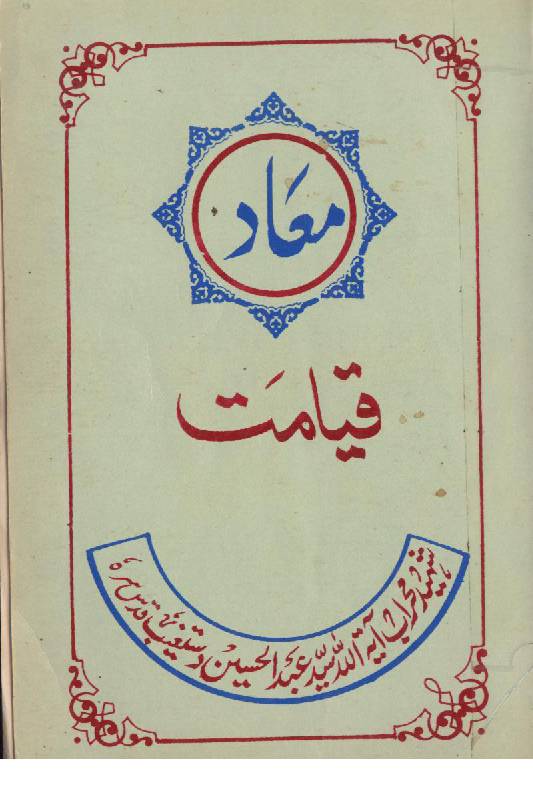 معاد
قیامت
شهید محراب آیة الله سید عبدالحسین دستغیب قدس سره